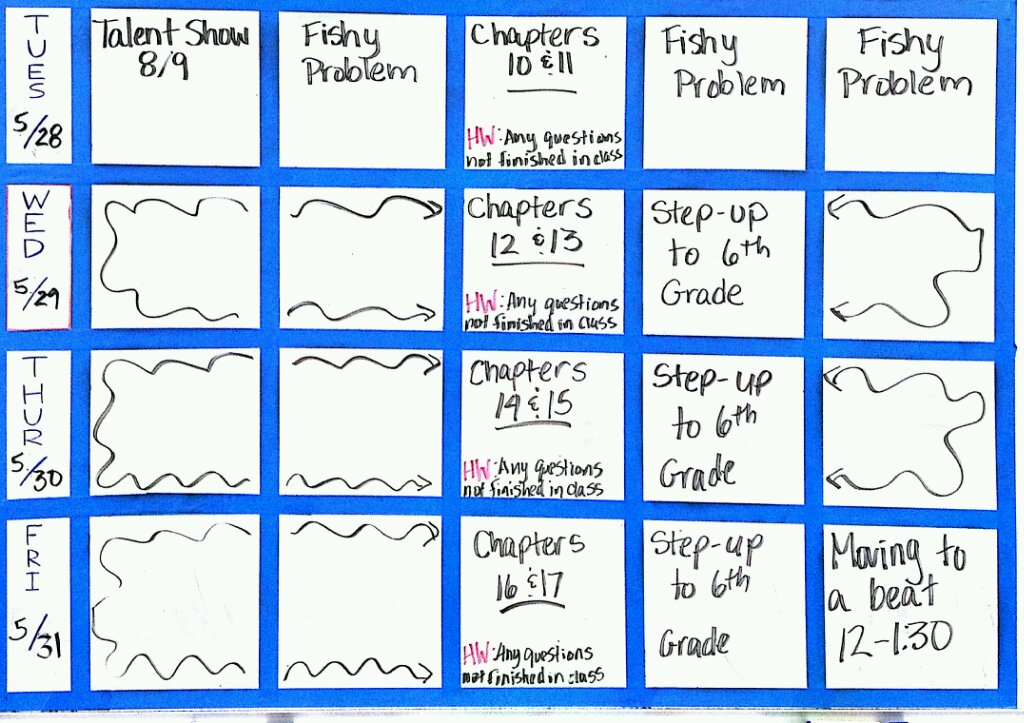 TUES
5/28
Talent Show
8/9
Fishy
Problem
Chapters
10 & 11
HW: Any questions
not finished in class
Fishy
Problem
Fishy
Problem
WED
5/29
Chapters
12 & 13
HW: Any questions
not finished in class
Step-up
to 6th
Grade
THUR
5/30
Chapters
14 & 15
HW: Any questions
not finished in class
Step-up
to 6th
Grade
FRI
5/31
Chapters
16 & 17
HW: Any questions
not finished in class
Step-up
to 6th
Grade
Moving to
a beat
12-1:30